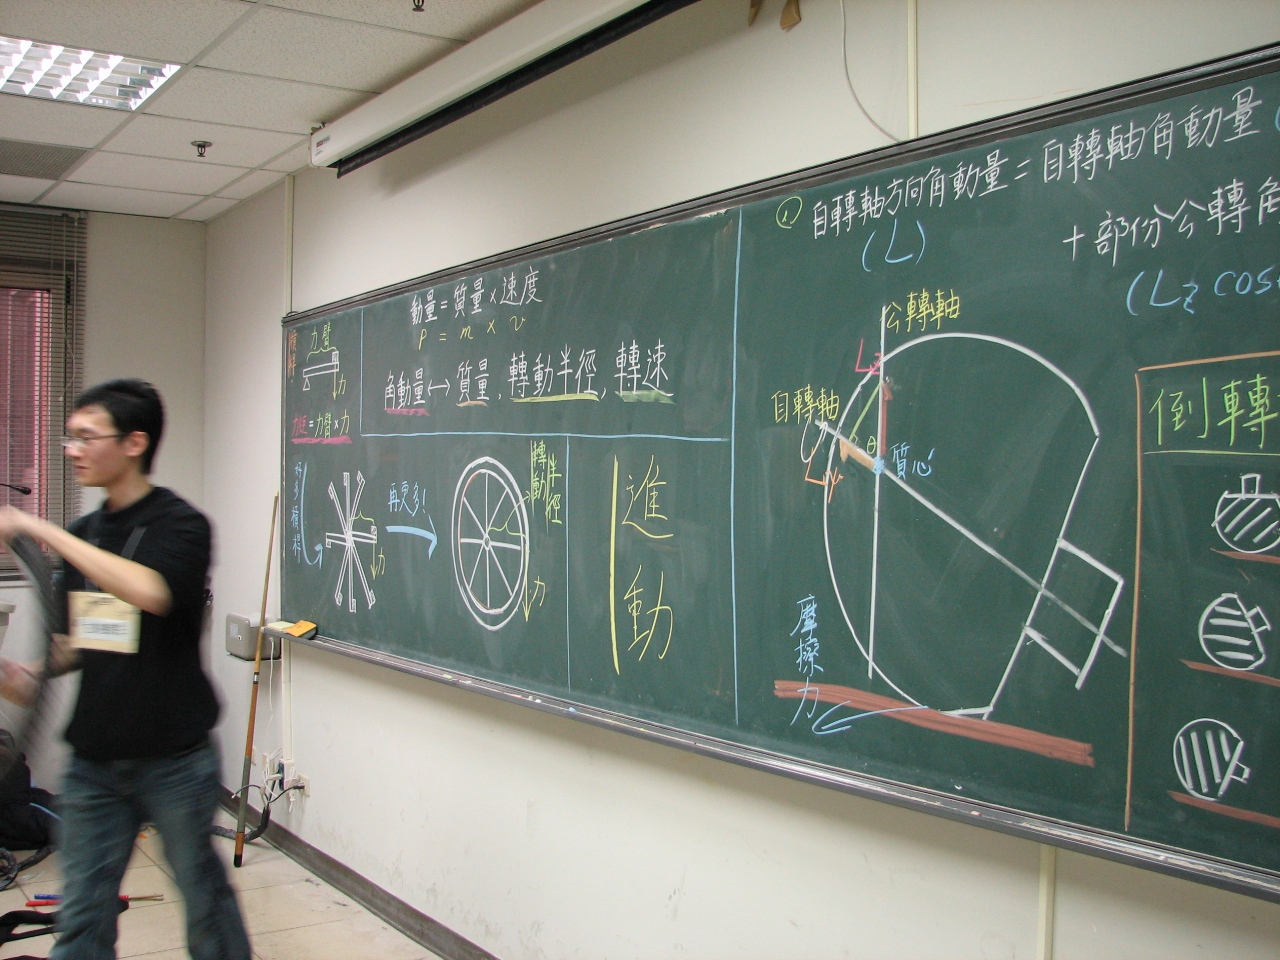 槓桿
力臂
力
力矩=力臂×力
動量=質量×速度
P = m × v
角動量↔質量,轉動半徑,轉速
好多槓桿
力
再更多!
轉動半徑
力
進動
自轉軸方向角動量=自轉軸角動量
(L)
+部份公轉角
(Lz cos
公轉軸
自轉軸
θ
質心
摩擦力
倒轉